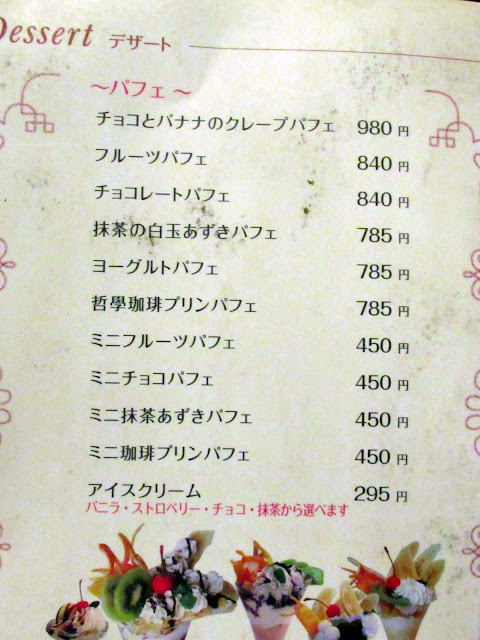 Dessert デザート
～パフェ～
チョコとバナナのクレープパフェ 980 円
フルーツパフェ 840 円
チョコレートパフェ 840 円
抹茶の白玉あずきパフェ 785 円
ヨーグルトパフェ 785 円
哲學珈琲プリンパフェ 785 円
ミニフルーツパフェ 450 円
ミニチョコパフェ 450 円
ミニ抹茶あずきパフェ 450 円
ミニ珈琲プリンパフェ 450 円
アイスクリーム 295 円
バニラ・ストロベリー・チョコ・抹茶から選べます